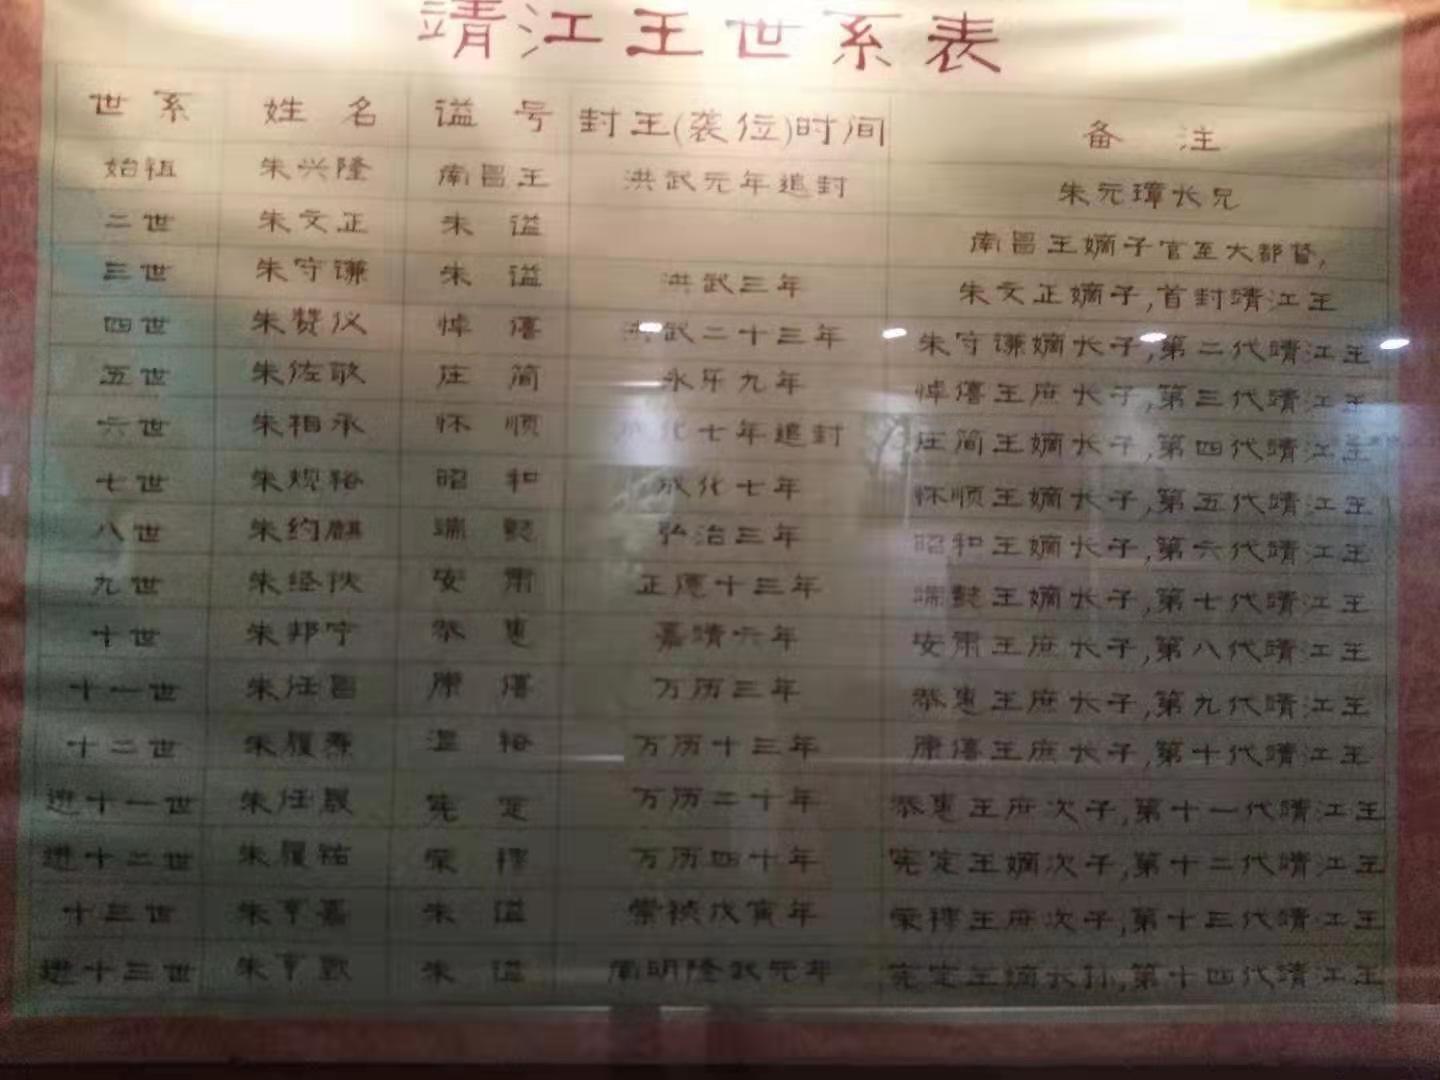 靖江王世系表
世系 姓名 谥号 封王(袭位)时间 备注
始祖 朱兴隆 南昌王 洪武元年追封 朱元璋长兄
二世 朱文正 朱谥 南昌王嫡子官至大都督,
三世 朱守谦 朱谥 洪武三年 朱文正嫡子,首封靖江王
四世 朱赞仪 悼僖 洪武二十三年 朱守谦嫡长子,第二代靖江王
五世 朱佐敬 庄简 永乐九年 悼僖王庶长子,第三代靖江王
六世 朱相承 怀顺 化七年追封 庄简王嫡长子,第四代靖江王
七世 朱规裕 昭和 成化七年 怀顺王嫡长子,第五代靖江王
八世 朱约麒 端懿 弘治三年 昭和王嫡长子,第六代靖江王
九世 朱经扶 安肃 正德十三年 端懿王嫡长子,第七代靖江王
十世 朱邦宁 恭惠 嘉靖六年 安肃王庶长子,第八代靖江王
十一世 朱任昌 康僖 万历三年 恭惠王庶长子,第九代靖江王
十二世 朱履焘 温裕 万历十三年 康僖王庶长子,第十代靖江王
进十一世 朱任晟 宪定 万历二十年 恭惠王庶次子,第十一代靖江王
进十二世 朱履祜 荣穆 万历四十年 宪定王嫡次子,第十二代靖江王
十三世 朱亨嘉 朱谥 崇祯戊寅年 荣穆王庶次子,第十三代靖江王
进十三世 朱亨歅 朱谥 南明隆武元年 宪定王嫡长孙,第十四代靖江王